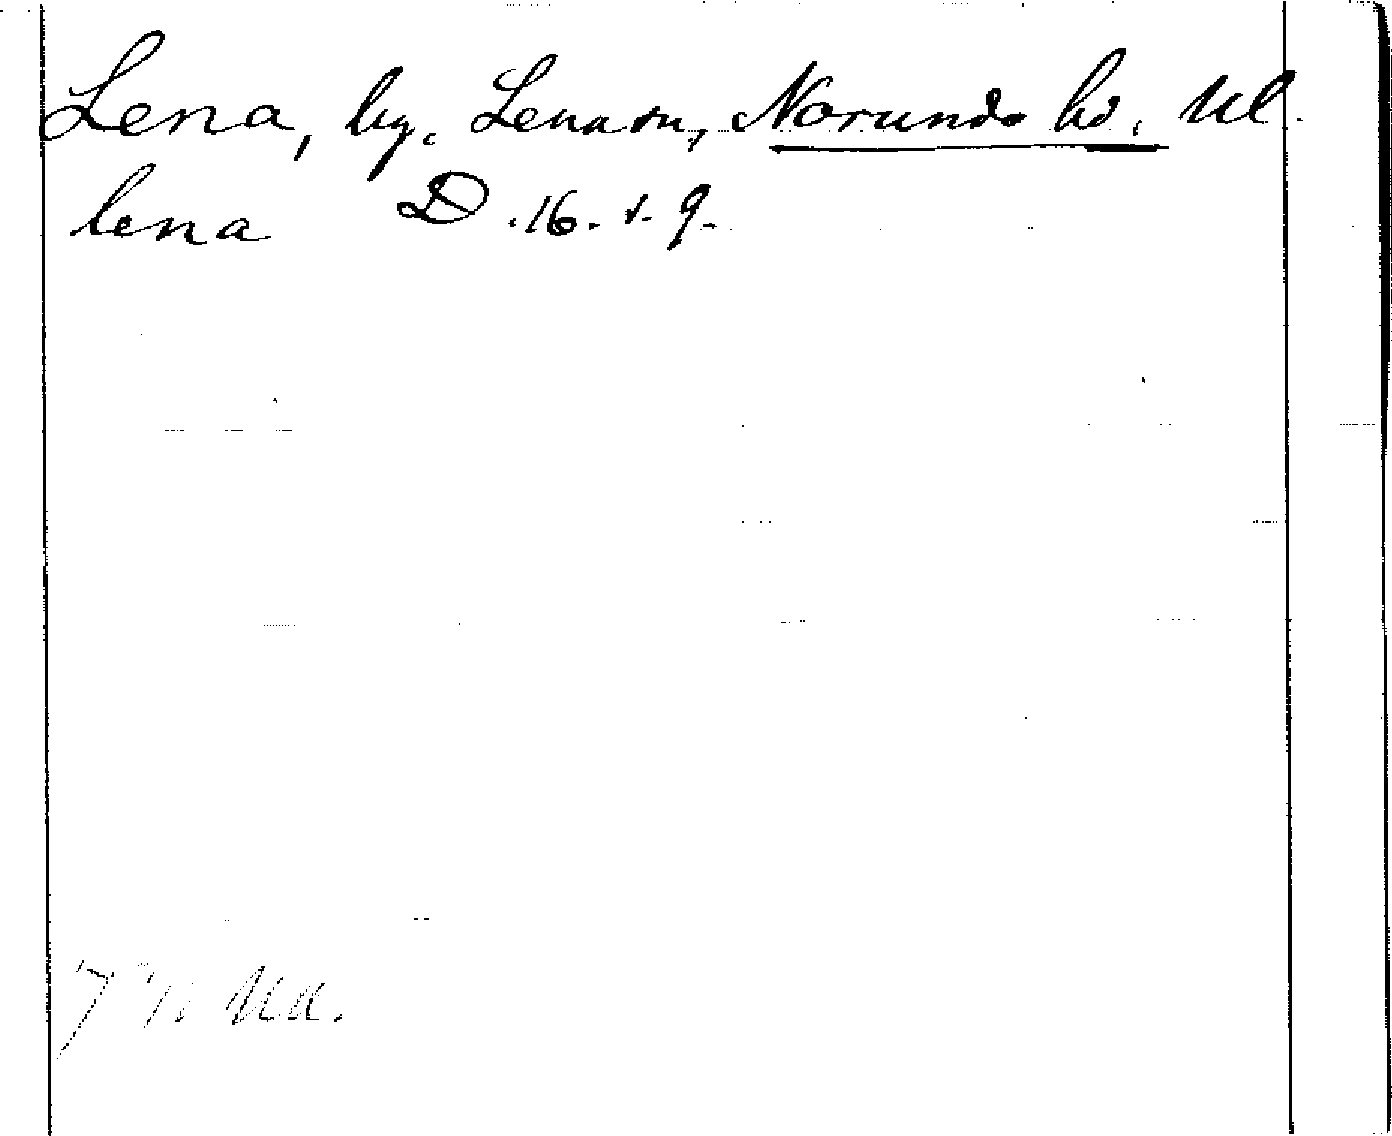 Lena, by. Lenasn, Norunds hd. Ul.
lena D. 16. s. 9.